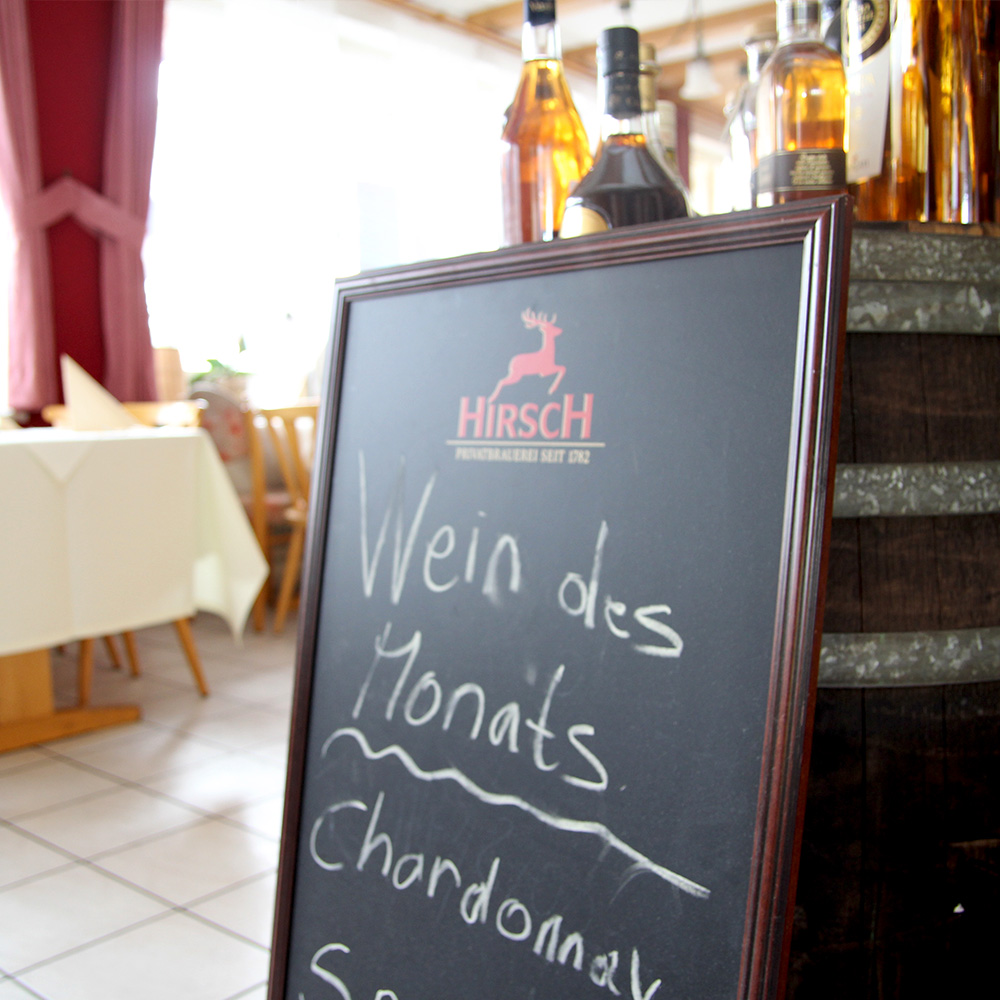 HIRSCH
PRIVATBRAUEREI SEIT 1782
Wein des
Monats
Chardonnay